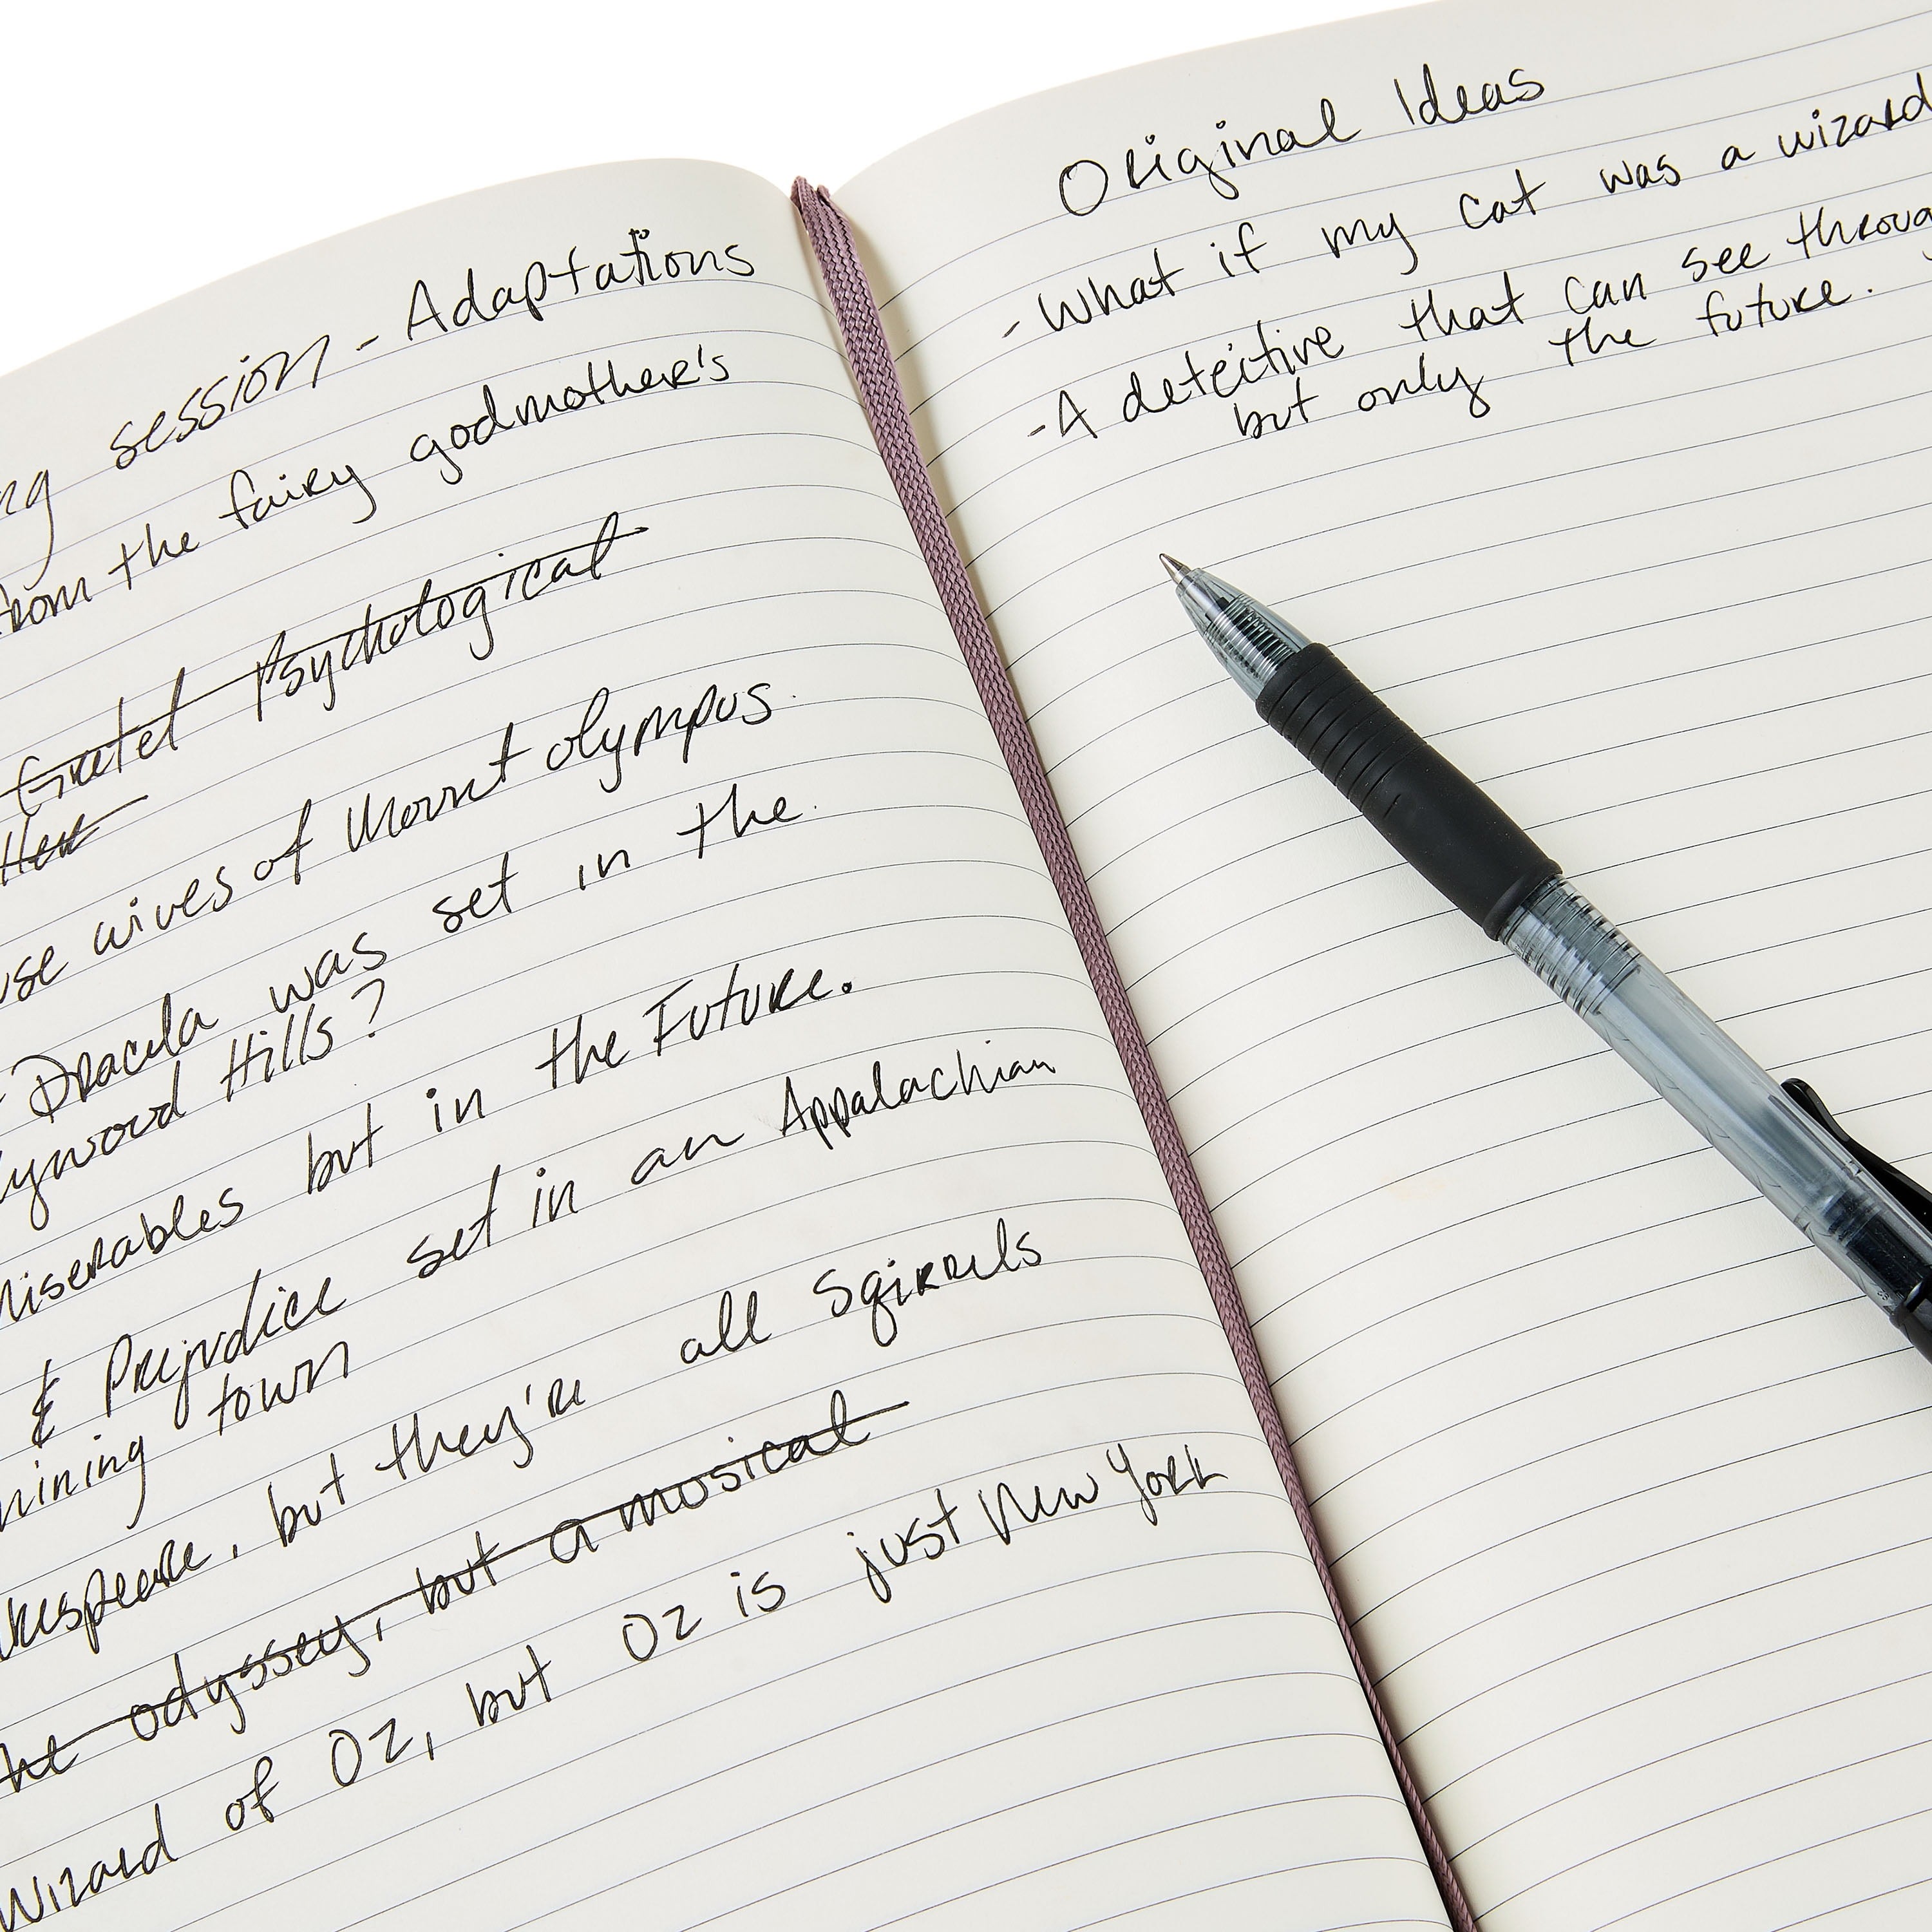 ng session - Adaptations
from the fairy godmother's
Gretel Psychological
use wives of Mount Olympus.
Dracula was set in the
lywood Hills?
Miserables but in the Future.
& Prejudice set in an Appalachian
mining town
kespeare, but they're all Sqirrels
he odyssey, but a musical
Wizard of Oz, but Oz is just New York
Original Ideas
- What if my cat was a wizard
- A detective that can see throug
but only the future.